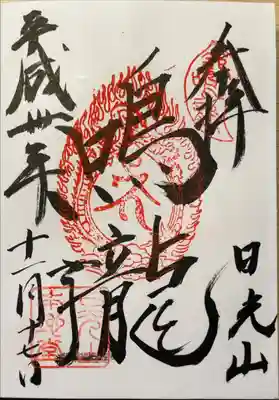 奉拝
日光山
鳴龍
平成卅年
十一月十七日